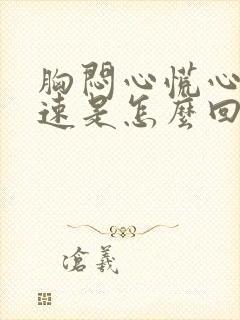 胸悶心慌心
速是怎麼回
滄羲